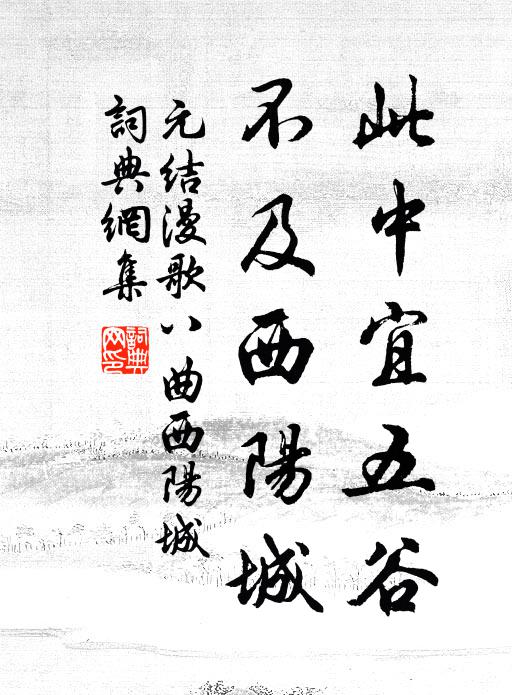 此中宜五谷
不及西陽城
元结漫歌八曲西陽城
詞典網集
詞典
网印